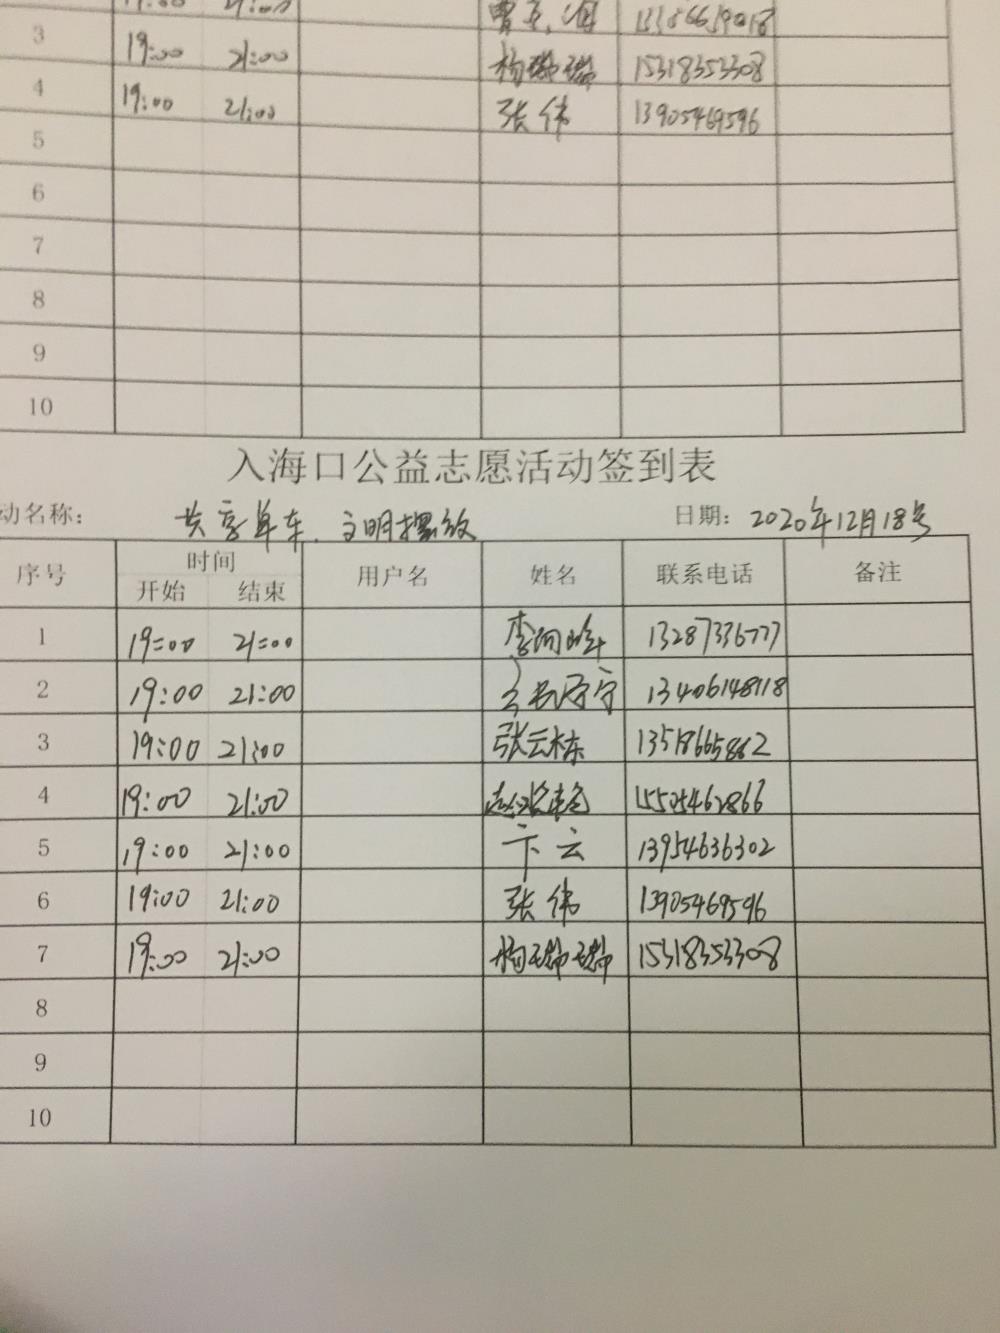 3 19:00 21:00 杨瑞瑞 15318353308
4 19:00 21:00 张伟 13905469596
5
6
7
8
9
10
入海口公益志愿活动签到表
动名称： 共享单车、文明摆放 日期： 2020年12月18号
序号 时间 用户名 姓名 联系电话 备注
开始 结束
1 19:00 21:00 13287336777
2 19:00 21:00 13406148118
3 19:00 21:00 张云栋 13518665862
4 19:00 21:00 15505462866
5 19:00 21:00 卞云 13954636302
6 19:00 21:00 张伟 13905469596
7 19:00 21:00 杨瑞瑞 15318353308
8
9
10